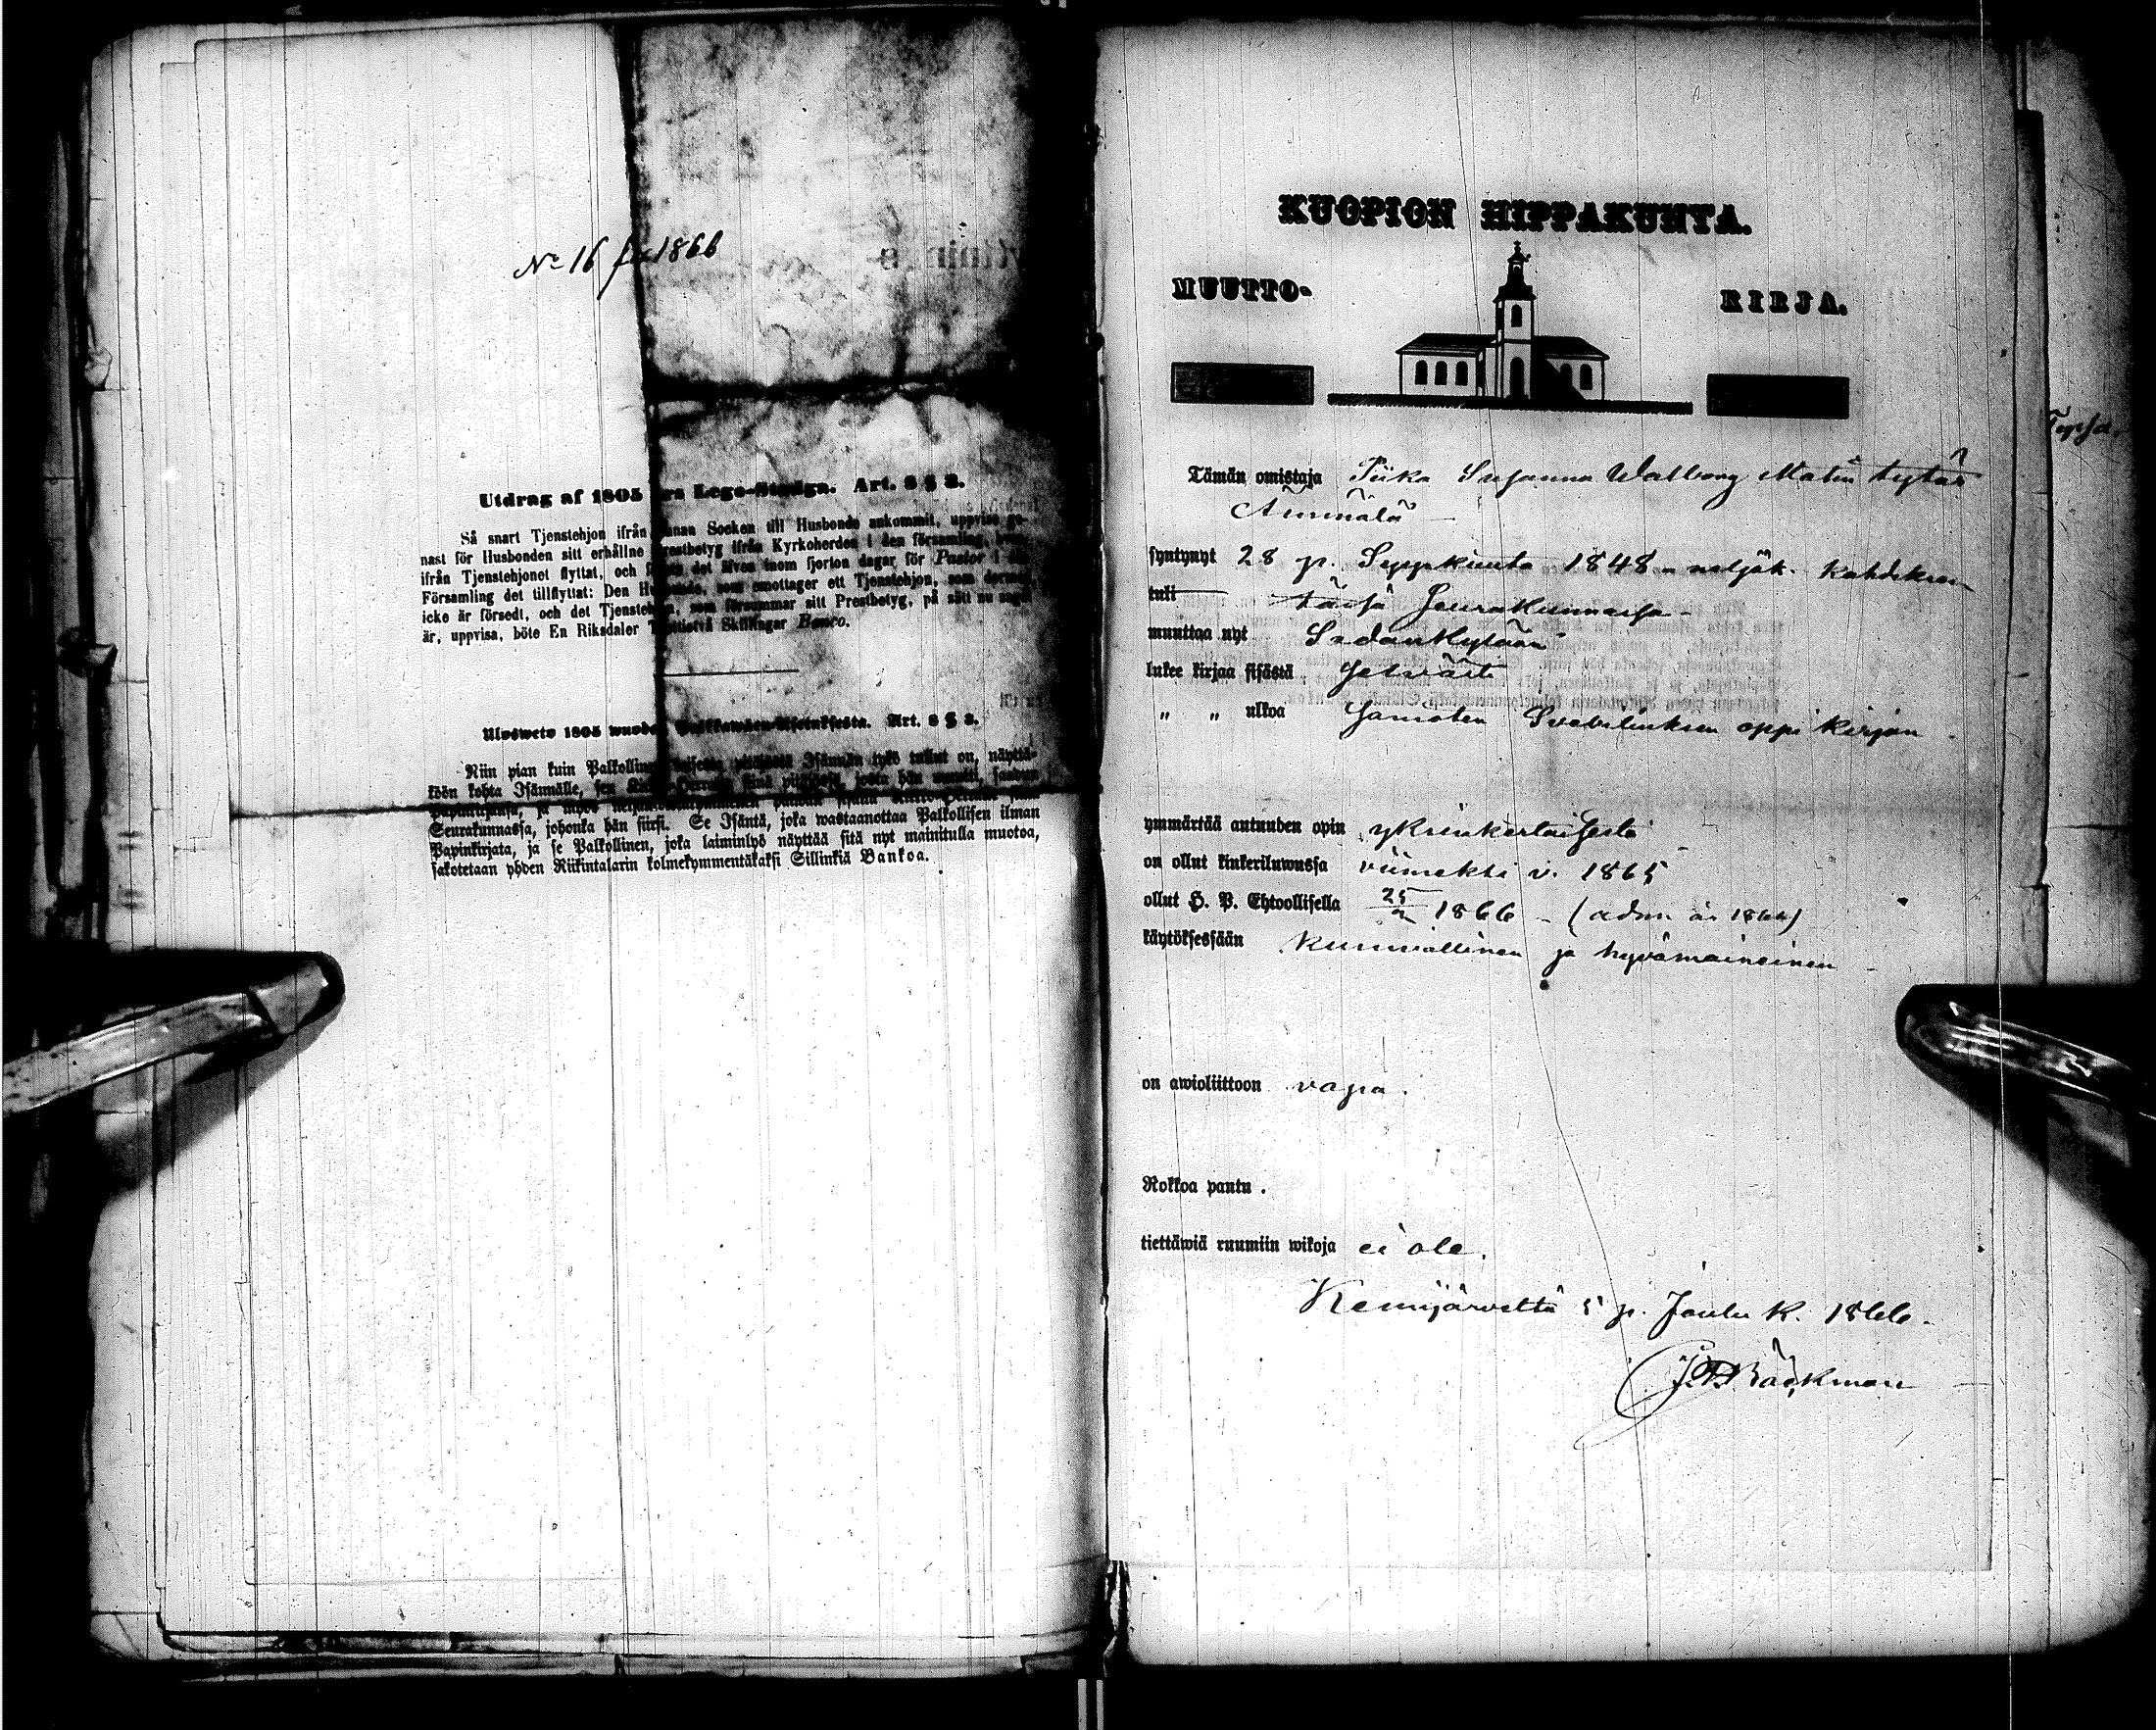 No 16 för 1866
Utdrag af 1805 års Lego-Stadga. Art. 8 § 3.
Så snart Tjenstehjon ifrån annan Socken till Husbonde ankommit, uppvise ge-
nast för Husbonden sitt erhållne Prestbetyg ifrån Kyrkoherden i den församling,
ifrån Tjenstehjonet flyttat, och det äfven inom fjorton dagar för Pastor i den
Församling det tillflyttat: Den Husbonde, som emottager ett Tjenstehjon, som dermed
icke är försedt, och det Tjenstehjon, som försummar sitt Prestbetyg, på sätt nu sagdt
är, uppvisa, böte En Riksdaler Trettiotvå Skillingar Banco.
Ulosweto 1805 wuoden Palkkawäen Asetuksesta. Art. 8 § 3.
Niin pian kuin Palkollinen pitäjästä Isännän tykö tullut on, näyttä-
köön kohta Isännälle, sen
Seurakunnassa, johonka hän siirsi. Se Isäntä, joka wastaanottaa Palkollisen ilman
Papinkirjata, ja se Palkollinen, joka laiminlyö näyttää sitä nyt mainitulla muotoa,
sakotetaan yhden Riikintalarin kolmekymmentäkaksi Sillinkiä Bankoa.
KUOPION HIPPAKUNTA.
MUUTTO- KIRJA.
Tämän omistaja Piika Susanna Walborg Matin tytär
Ämmälä
syntynyt 28 p. Syyskuuta 1848 - neljäk. kahdeksan
tuli tässä Seurakunnassa -
muuttaa nyt Sodankylään
lukee kirjaa sisästä Selwästi
„ „ ulkoa Samoten Svebiliuksen oppi kirjan
ymmärtää autuuden opin yksinkertaisesti
on ollut kinkeriluwussa viimeksi v. 1865
ollut H. P. Ehtoollisella 25/2 1866 - (adm. år 1864)
käytöksessään kunniallinen ja hyvämaineinen
on awioliittoon vapa.
Rokkoa pantu.
tiettäwiä ruumiin wikoja ei ole.
Kemijärveltä 5 p. Joulu K. 1866.
Bäckman